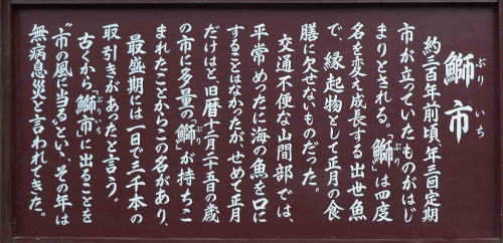 鰤市
約三百年前頃、年三回定期
市が立っていたものがはじ
まりとされる。「鰤」は四度
名を変え成長する出世魚
で、縁起物として正月の食
膳に欠せないものだった。
交通不便な山間部では、
平常めったに海の魚を口に
することはなかったが、せめて正月
だけはと旧暦十二月二十五日の歳
の市に多量の「鰤」が持ちこ
まれたことからこの名があり、
最盛期には一日で二千本の
取引きがあったと言う。
古くから、「鰤市」に出ることを
“市の風に当る”といい、その年は
無病息災と言われてきた。